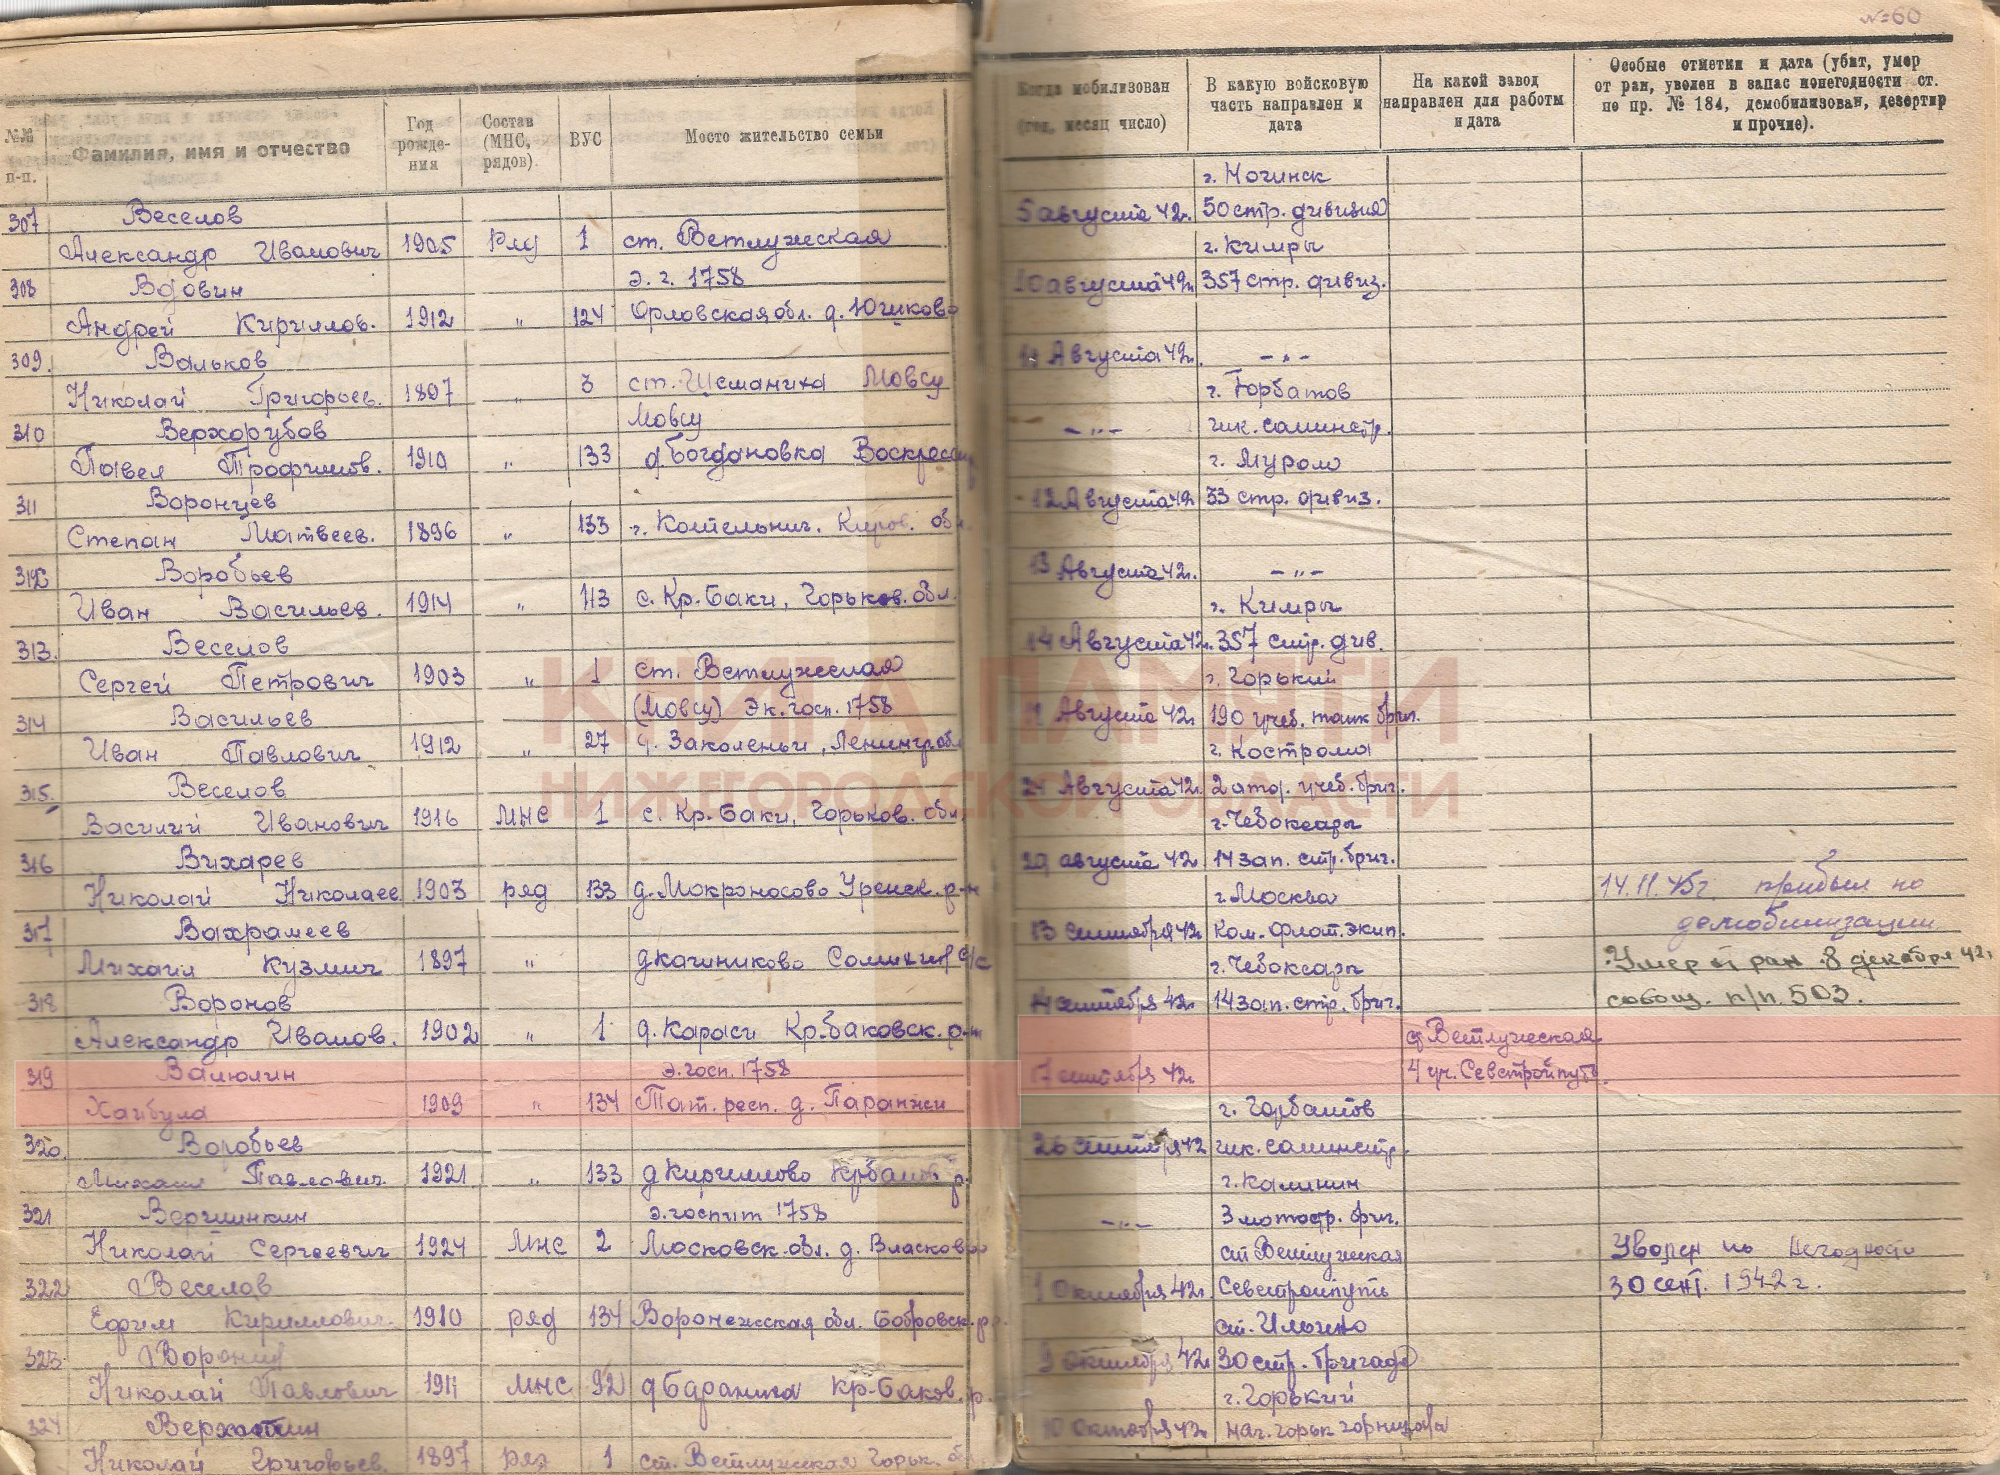 №№ п-п.
Фамилия, имя и отчество
Год рожде- ния
Состав (МНС, рядов).
ВУС
Место жительство семьи
307 Веселов
Александр Иванович 1905 Ряд 1 ст. Ветлужская
308 Вдовин э. г. 1758
Андрей Кириллов. 1912 „ 124 Орловская обл. д. Юшково
309. Вальков
Николай Григорьев. 1897 „ 3 ст. Шеманиха Мовсу
310 Верхорубов Мовсу
Павел Трофимов. 1910 „ 133 д. Богдановка
311 Воронцев
Степан Матвеев. 1896 „ 133 г. Котельнич. Киров. обл.
Воробьев
Иван Васильев. 1914 „ 113 с. Кр. Баки, Горьков. обл.
313. Веселов
Сергей Петрович 1903 „ 1 ст. Ветлужская
314 Васильев (Мовсу) Эк. госп. 1758
Иван Павлович 1912 „ 27 Ленингр. обл
315. Веселов
Василий Иванович 1916 МНС 1 с. Кр. Баки, Горьков. обл.
316 Вихарев
Николай Николаев 1903 ряд 133 д. Мокроносово Уренск. р-н
317 Вахрамеев
Михаил Кузмич 1897 „
318 Воронов
Александр Иванов. 1902 „ 1 д. Караси Кр. баковск. р-н
319 Валюлин э. госп. 1758
Хайбула 1909 „ 134 Тат. респ. д. Паранжи
320. Воробьев
Михаил Павлович 1921 „ 133 д Кириллово
321 Вершинкин э. госпит 1758
Николай Сергеевич 1924 МНС 2 Московск. обл. д. Власково
322 Веселов
Ефим Кириллович. 1910 ряд 134 Воронежская обл. Бобровск. р
323 Воронин
Николай Павлович 1911 МНС 92 Кр-Баков. р.
324
Николай Григорьев. 1897 ряд 1 ст. Ветлужская Горьк. об
№ 60
Когда мобилизован (год, месяц число)
В какую войсковую часть направлен и дата
На какой завод направлен для работы и дата
Особые отметки и дата (убит, умер от ран, уволен в запас понегодности ст. по пр. № 184, демобилизован, дезертир и прочие).
г. Ногинск
5 августа 42г. 50 стр. дивизия
г. Кимры
10 августа 42г. 357 стр. дивиз.
11 Августа 42г. – „ –
г. Горбатов
– „ –
г. Муром
12 Августа 42 33 стр. дивиз.
13 Августа 42г. – „ –
г. Кимры
14 Августа 42г. 357 стр. див.
г. Горький
Августа 42г. 190 учеб. танк бриг.
г. Кострома
Августа 42г. учеб. бриг.
г. Чебоксары
августа 42г 14 зап. стр. бриг.
г. Москва 14.11.45г. прибыл по
13 сентября 42 Ком. флот. экип. демобилизации
г. Чебоксары Умер от ран 8 декабря 42г.
14 сентября 42г. 14 зап. стр. бриг. сообщ. п/п. 503.
ст Ветлужская
17 сентября 42г. 4 уч. Севстройпуть.
г. Горбатов
26 сентября 42
г. Калинин
– „ – 3 мотостр. бриг.
ст Ветлужская Уволен по негодности
1 Октября 42г. Севстройпуть 30 сент. 1942 г.
ст. Ильино
9 октября 42г 30 стр. бригада
г. Горький
10 Октября 42г.
КНИГА ПАМЯТИ
НИЖЕГОРОДСКОЙ ОБЛАСТИ